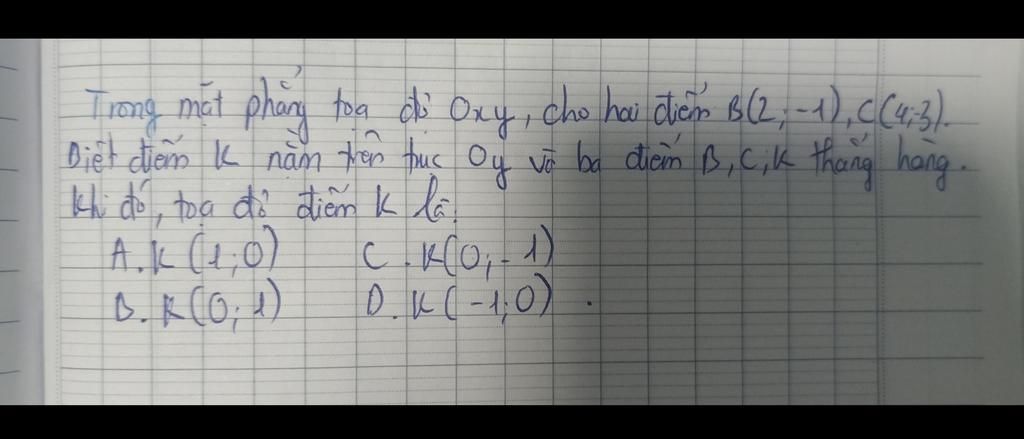 Trong mặt phẳng tọa độ Oxy, cho hai điểm B(2;-1), C(4;-3).
Biết điểm K nằm trên trục Oy và ba điểm B, C, K thẳng hàng.
Khi đó, tọa độ điểm K là:
A. K(1;0) C. K(0;-1)
B. K(0;1) D. K(-1;0).